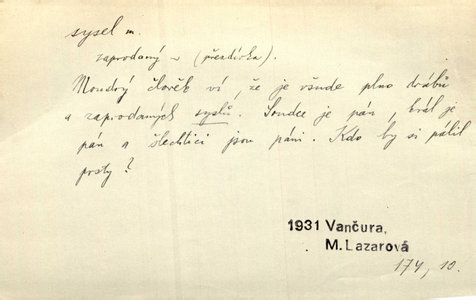 sysel m.
zaprodaný ~ (přezdívka).
Moudrý člověk ví, že je všude plno drábů
a zaprodaných syslů. Soudce je pán, král je
pán a šlechtici jsou páni. Kdo by si pálil
prsty?
1931 Vančura,
M. Lazarová
174, 10.